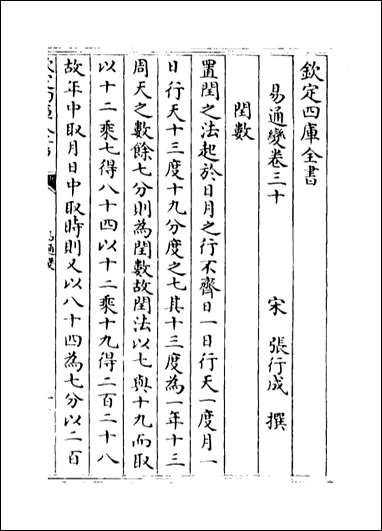 欽定四庫全書
易通變卷三十
宋 張行成 撰
閏數
置閏之法起於日月之行不齊日一日行天一度月一
日行天十三度十九分度之七其十三度為一年十三
周天之數餘七分則為閏數故閏法以七與十九而取
以十二乘七得八十四以十二乘十九得二百二十八
故年中取月日中取時則又以八十四為七分以二百
易通變
一